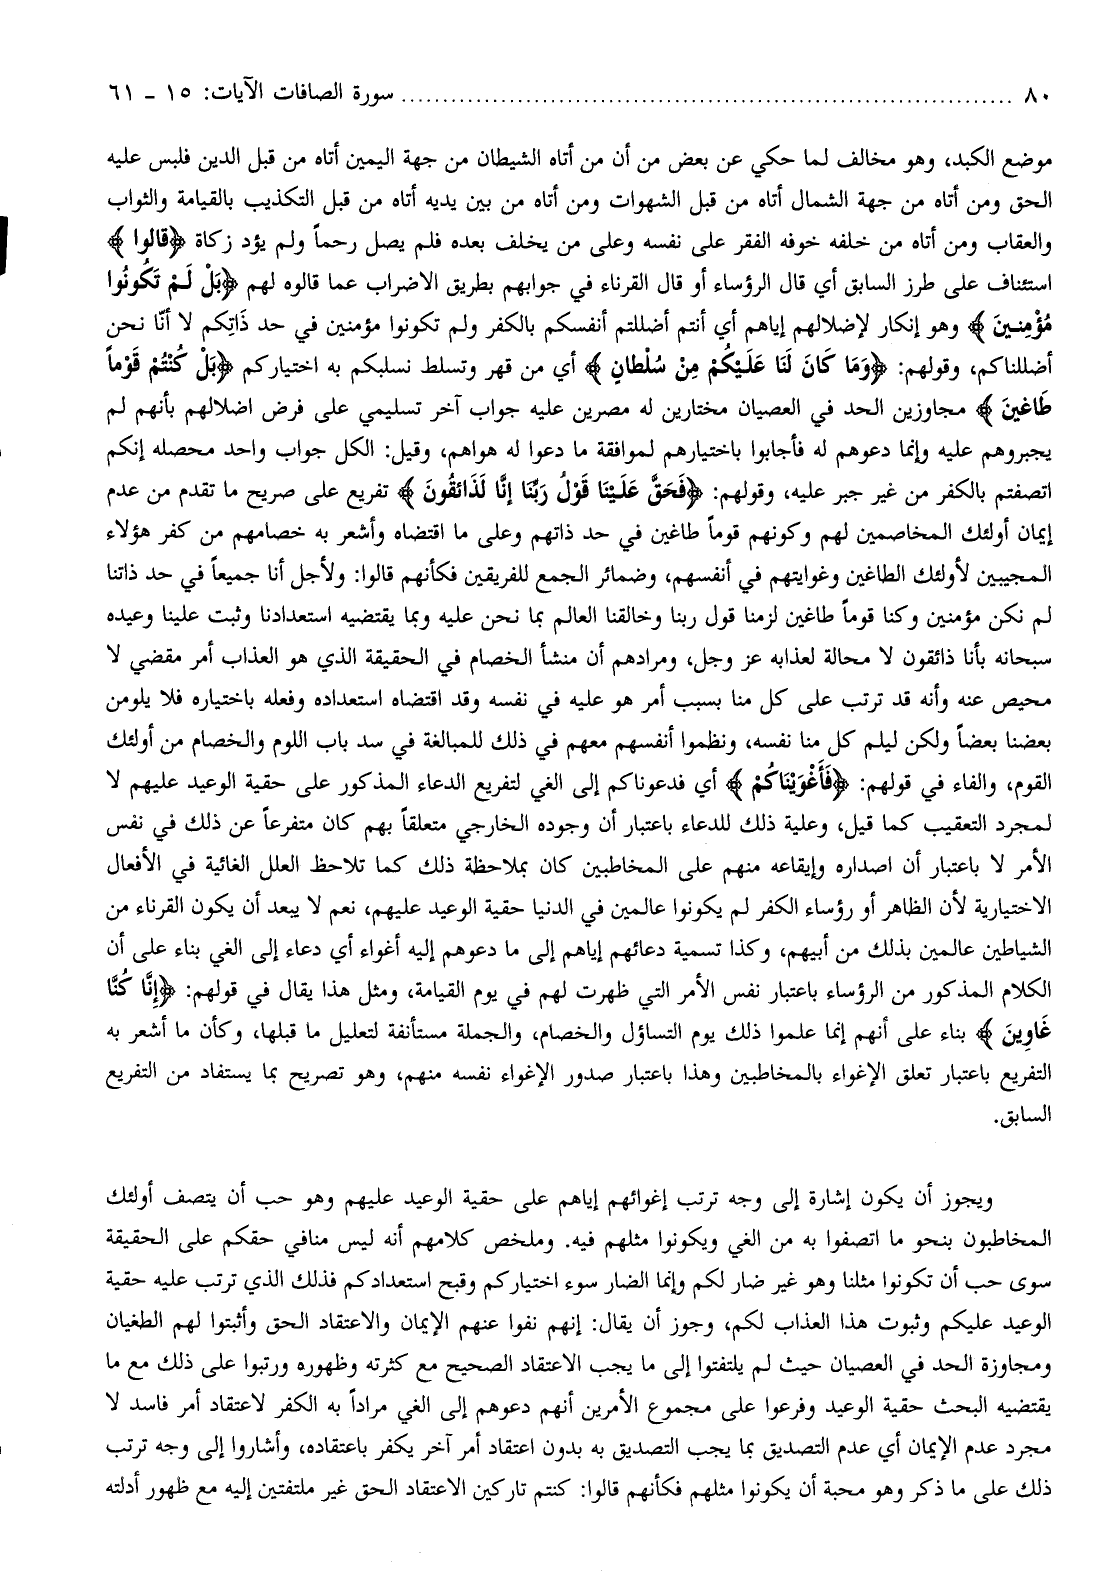 ٨٠ ........................................................ سورة الصافات الآيات: ١٥ ـ ٦١
موضع الكبد، وهو مخالف لما حكي عن بعض من أن من أتاه الشيطان من جهة اليمين أتاه من قبل الدين فلبس عليه
الحق ومن أتاه من جهة الشمال أتاه من قبل الشهوات ومن أتاه من بين يديه أتاه من قبل التكذيب بالقيامة والثواب
والعقاب ومن أتاه من خلفه خوفه الفقر على نفسه وعلى من يخلف بعده فلم يصل رحماً ولم يؤد زكاة ﴿قالوا﴾
استئناف على طرز السابق أي قال الرؤساء أو قال القرناء في جوابهم بطريق الاضراب عما قالوه لهم ﴿بَلْ لَمْ تَكُونُوا
مُؤْمِنِينَ﴾ وهو إنكار لإضلالهم إياهم أي أنتم أضللتم أنفسكم بالكفر ولم تكونوا مؤمنين في حد ذَاتِكم لا أنّا نحن
أضللناكم، وقولهم: ﴿وَمَا كَانَ لَنَا عَلَيْكُمْ مِنْ سُلْطانٍ﴾ أي من قهر وتسلط نسلبكم به اختياركم ﴿بَلْ كُنْتُمْ قَوْماً
طَاغينَ﴾ مجاوزين الحد في العصيان مختارين له مصرين عليه جواب آخر تسليمي على فرض اضلالهم بأنهم لم
يجبروهم عليه وإنما دعوهم له فأجابوا باختيارهم لموافقة ما دعوا له هواهم، وقيل: الكل جواب واحد محصله إنكم
اتصفتم بالكفر من غير جبر عليه، وقولهم: ﴿فَحَقَّ عَلَيْنَا قَوْلُ رَبِّنَا إنَّا لَذَائقُونَ﴾ تفريع على صريح ما تقدم من عدم
إيمان أولئك المخاصمين لهم وكونهم قوماً طاغين في حد ذاتهم وعلى ما اقتضاه وأشعر به خصامهم من كفر هؤلاء
المجيبين لأولئك الطاغين وغوايتهم في أنفسهم، وضمائر الجمع للفريقين فكأنهم قالوا: ولأجل أنا جميعاً في حد ذاتنا
لم نكن مؤمنين وكنا قوماً طاغين لزمنا قول ربنا وخالقنا العالم بما نحن عليه وبما يقتضيه استعدادنا وثبت علينا وعيده
سبحانه بأنا ذائقون لا محالة لعذابه عز وجل، ومرادهم أن منشأ الخصام في الحقيقة الذي هو العذاب أمر مقضي لا
محيص عنه وأنه قد ترتب على كل منا بسبب أمر هو عليه في نفسه وقد اقتضاه استعداده وفعله باختياره فلا يلومن
بعضنا بعضاً ولكن ليلم كل منا نفسه، ونظموا أنفسهم معهم في ذلك للمبالغة في سد باب اللوم والخصام من أولئك
القوم، والفاء في قولهم: ﴿فَأَغْوَيْنَاكُمْ﴾ أي فدعوناكم إلى الغي لتفريع الدعاء المذكور على حقية الوعيد عليهم لا
لمجرد التعقيب كما قيل، وعلية ذلك للدعاء باعتبار أن وجوده الخارجي متعلقاً بهم كان متفرعاً عن ذلك في نفس
الأمر لا باعتبار أن اصداره وإيقاعه منهم على المخاطبين كان بملاحظة ذلك كما تلاحظ العلل الغائية في الأفعال
الاختيارية لأن الظاهر أو رؤساء الكفر لم يكونوا عالمين في الدنيا حقية الوعيد عليهم، نعم لا يبعد أن يكون القرناء من
الشياطين عالمين بذلك من أبيهم، وكذا تسمية دعائهم إياهم إلى ما دعوهم إليه أغواء أي دعاء إلى الغي بناء على أن
الكلام المذكور من الرؤساء باعتبار نفس الأمر التي ظهرت لهم في يوم القيامة، ومثل هذا يقال في قولهم: ﴿إنَّا كُنَّا
غَاوِينَ﴾ بناء على أنهم إنما علموا ذلك يوم التساؤل والخصام، والجملة مستأنفة لتعليل ما قبلها، وكأن ما أشعر به
التفريع باعتبار تعلق الإغواء بالمخاطبين وهذا باعتبار صدور الإغواء نفسه منهم، وهو تصريح بما يستفاد من التفريع
السابق.
ويجوز أن يكون إشارة إلى وجه ترتب إغوائهم إياهم على حقية الوعيد عليهم وهو حب أن يتصف أولئك
المخاطبون بنحو ما اتصفوا به من الغي ويكونوا مثلهم فيه. وملخص كلامهم أنه ليس منافي حقكم على الحقيقة
سوى حب أن تكونوا مثلنا وهو غير ضار لكم وإنما الضار سوء اختياركم وقبح استعدادكم فذلك الذي ترتب عليه حقية
الوعيد عليكم وثبوت هذا العذاب لكم، وجوز أن يقال: إنهم نفوا عنهم الإيمان والاعتقاد الحق وأثبتوا لهم الطغيان
ومجاوزة الحد في العصيان حيث لم يلتفتوا إلى ما يجب الاعتقاد الصحيح مع كثرته وظهوره ورتبوا على ذلك مع ما
يقتضيه البحث حقية الوعيد وفرعوا على مجموع الأمرين أنهم دعوهم إلى الغي مراداً به الكفر لاعتقاد أمر فاسد لا
مجرد عدم الإيمان أي عدم التصديق بما يجب التصديق به بدون اعتقاد أمر آخر يكفر باعتقاده، وأشاروا إلى وجه ترتب
ذلك على ما ذكر وهو محبة أن يكونوا مثلهم فكأنهم قالوا: كنتم تاركين الاعتقاد الحق غير ملتفتين إليه مع ظهور أدلته